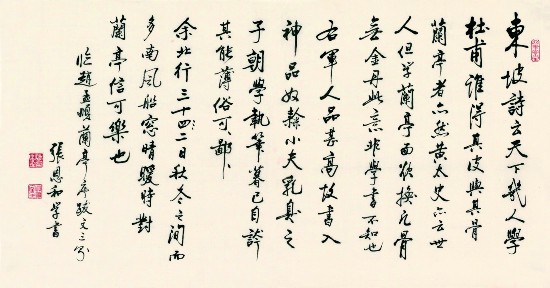 東坡詩云天下幾人學
杜甫誰得其皮與其骨
蘭亭者亦然黃太史亦云世
人但學蘭亭面欲換凡骨
無金丹此意非學書不知也
右軍人品甚高故書入
神品奴隸小夫乳臭之
子朝學執筆暮已自誇
其能薄俗可鄙
余北行三十二日秋冬之間而
多南風船窓晴暖時對
蘭亭信可樂也
臨趙孟頫蘭亭序跋文三
張恩和學書